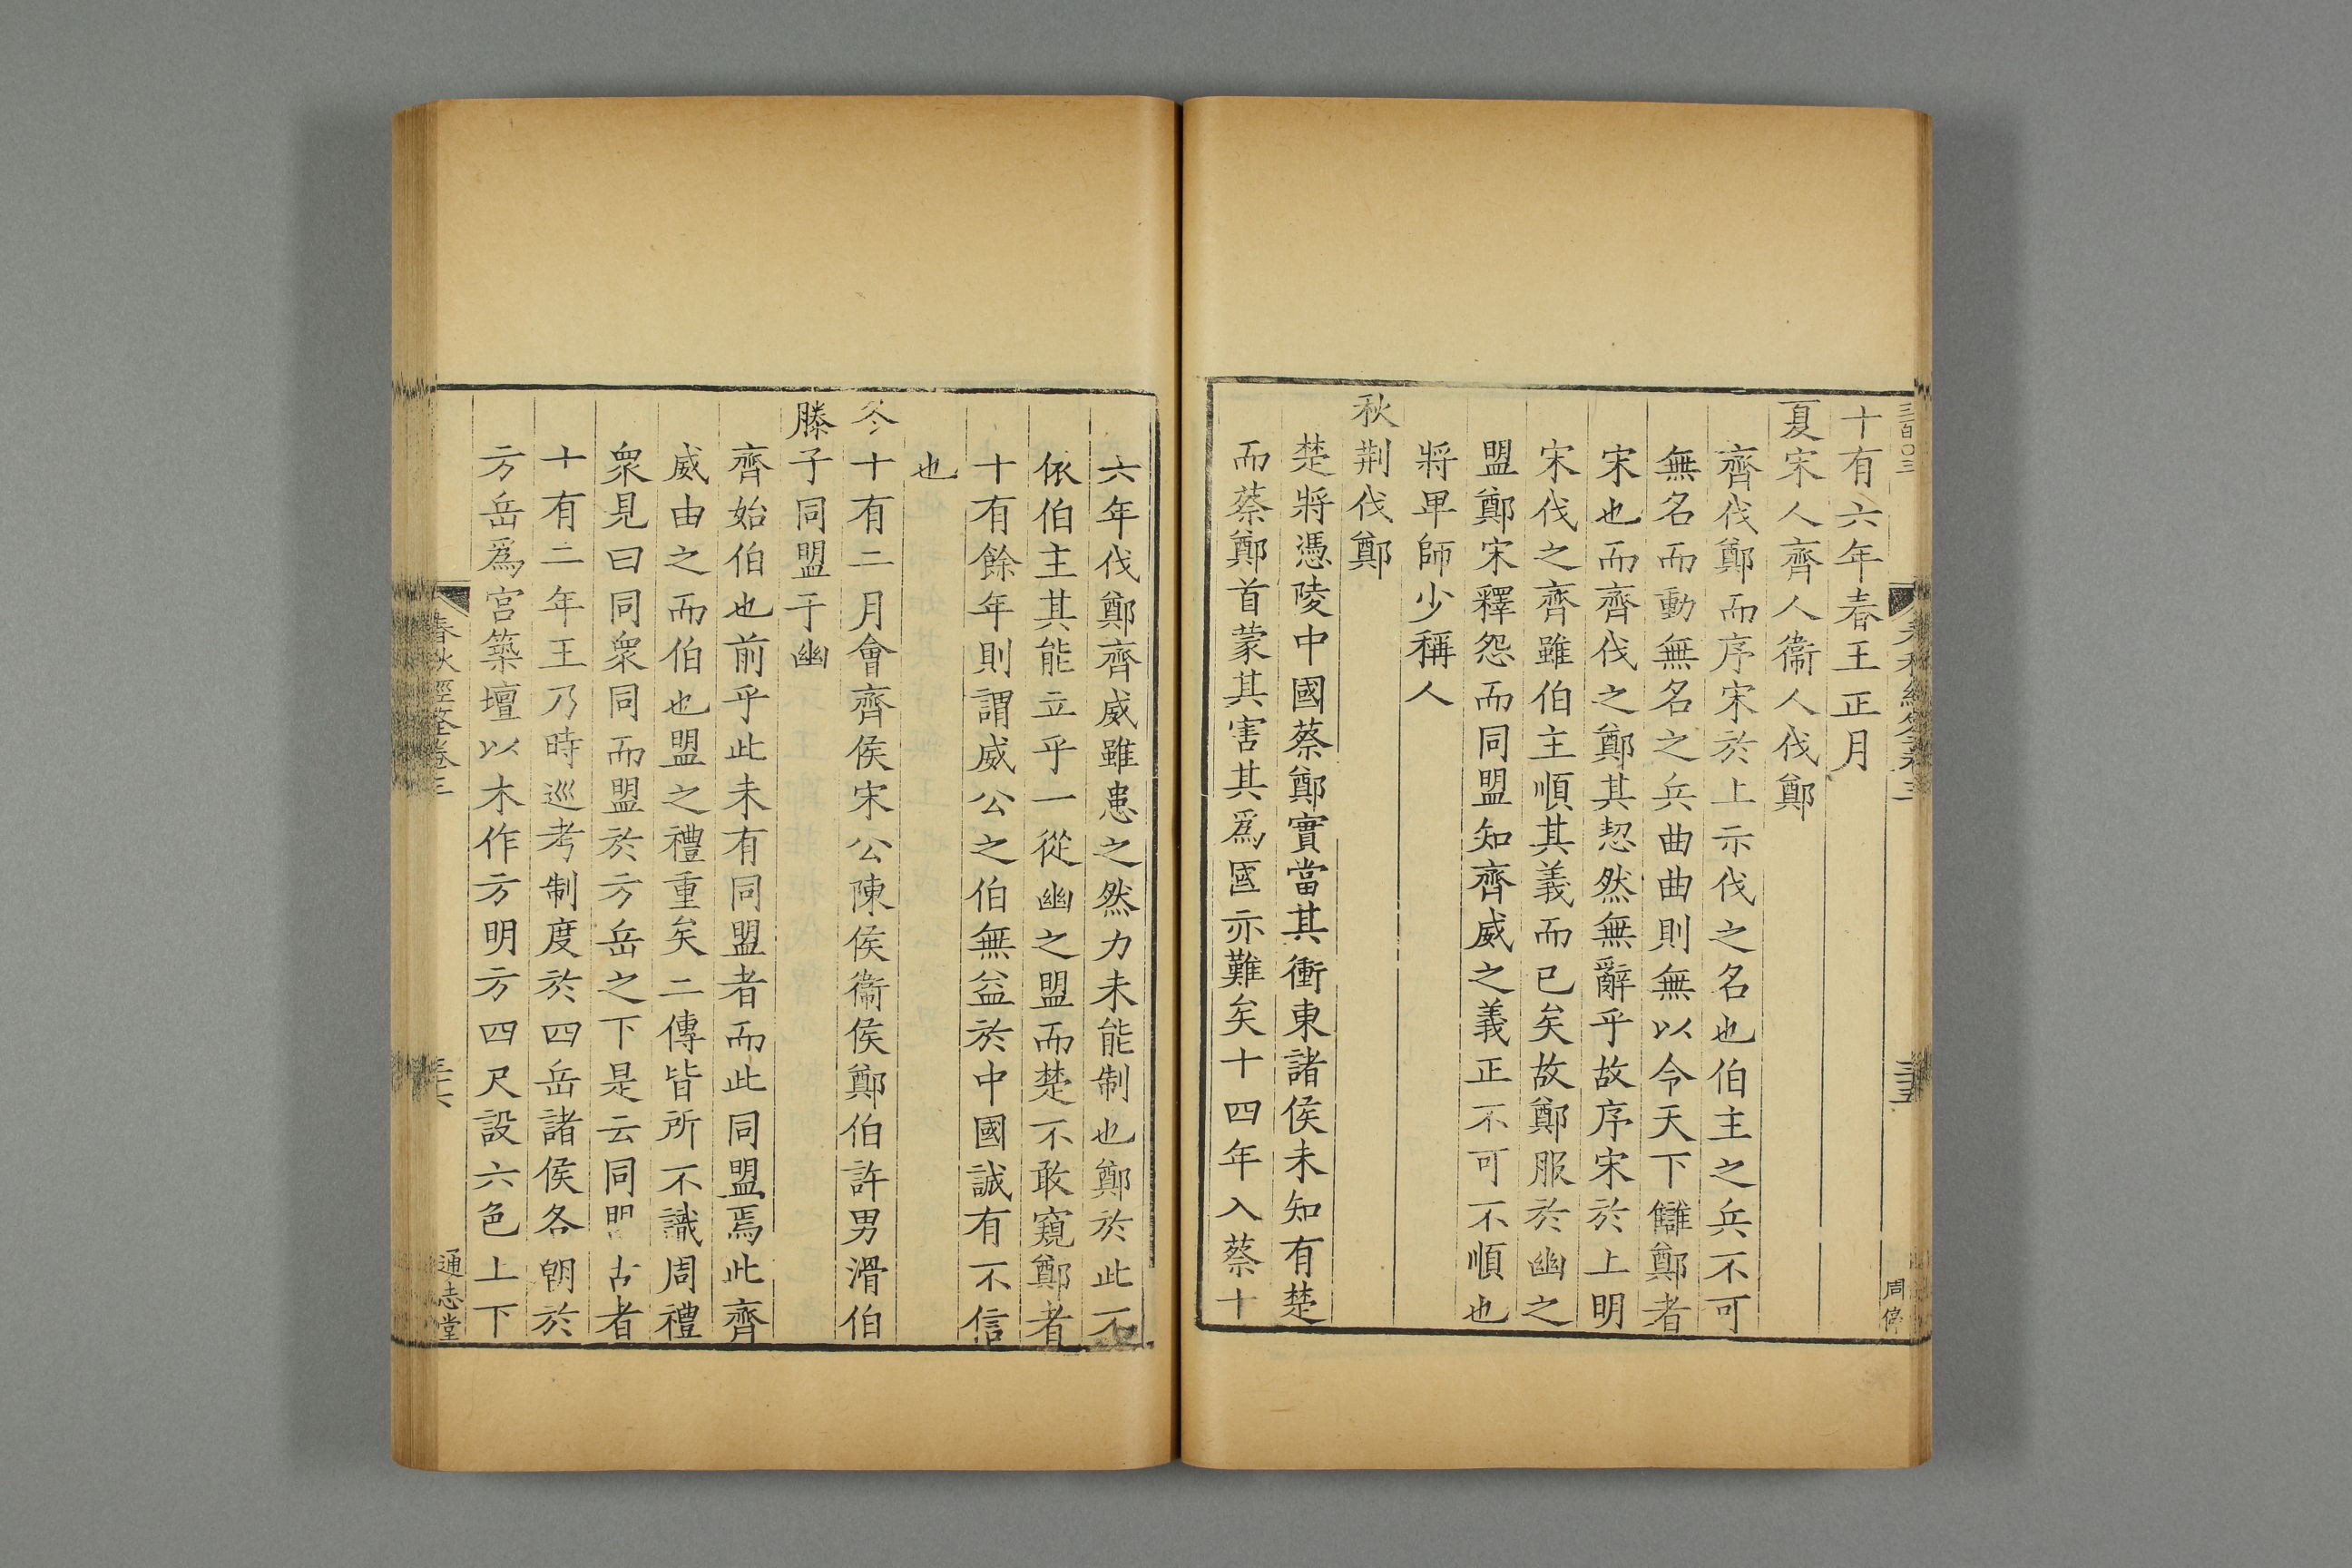 十有六年春王正月
夏宋人齊人衞人伐鄭
齊伐鄭而序宋於上示伐之名也伯主之兵不可
無名而動無名之兵曲曲則無以令天下讎鄭者
宋也而齊伐之鄭其恝然無辭乎故序宋於上明
宋伐之齊雖伯主順其義而已矣故鄭服於幽之
盟鄭宋釋怨而同盟知齊威之義正不可不順也
將卑師少稱人
秋荆伐鄭
楚將憑陵中國蔡鄭實當其衝東諸侯未知有楚
而蔡鄭首蒙其害其爲國亦難矣十四年入蔡十
六年伐鄭齊威雖患之然力未能制也鄭於此不
依伯主其能立乎一從幽之盟而楚不敢窺鄭者
十有餘年則謂威公之伯無益於中國誠有不信
也
冬十有二月會齊侯宋公陳侯衞侯鄭伯許男滑伯
滕子同盟于幽
齊始伯也前乎此未有同盟者而此同盟焉此齊
威由之而伯也盟之禮重矣二傳皆所不識周禮
衆見曰同衆同而盟於方岳之下是云同盟古者
十有二年王乃時巡考制度於四岳諸侯各朝於
方岳爲宮築壇以木作方明方四尺設六色上下
春秋經筌卷三
通志堂